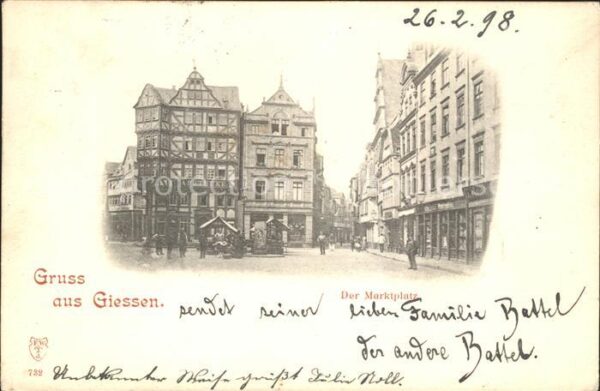 26.2.98.
Gruss
aus Giessen.
Der Marktplatz.
sendet seiner lieben Familie Battel
der andere Battel.
732
Unbekannter Weise grüßt Julie Noll.